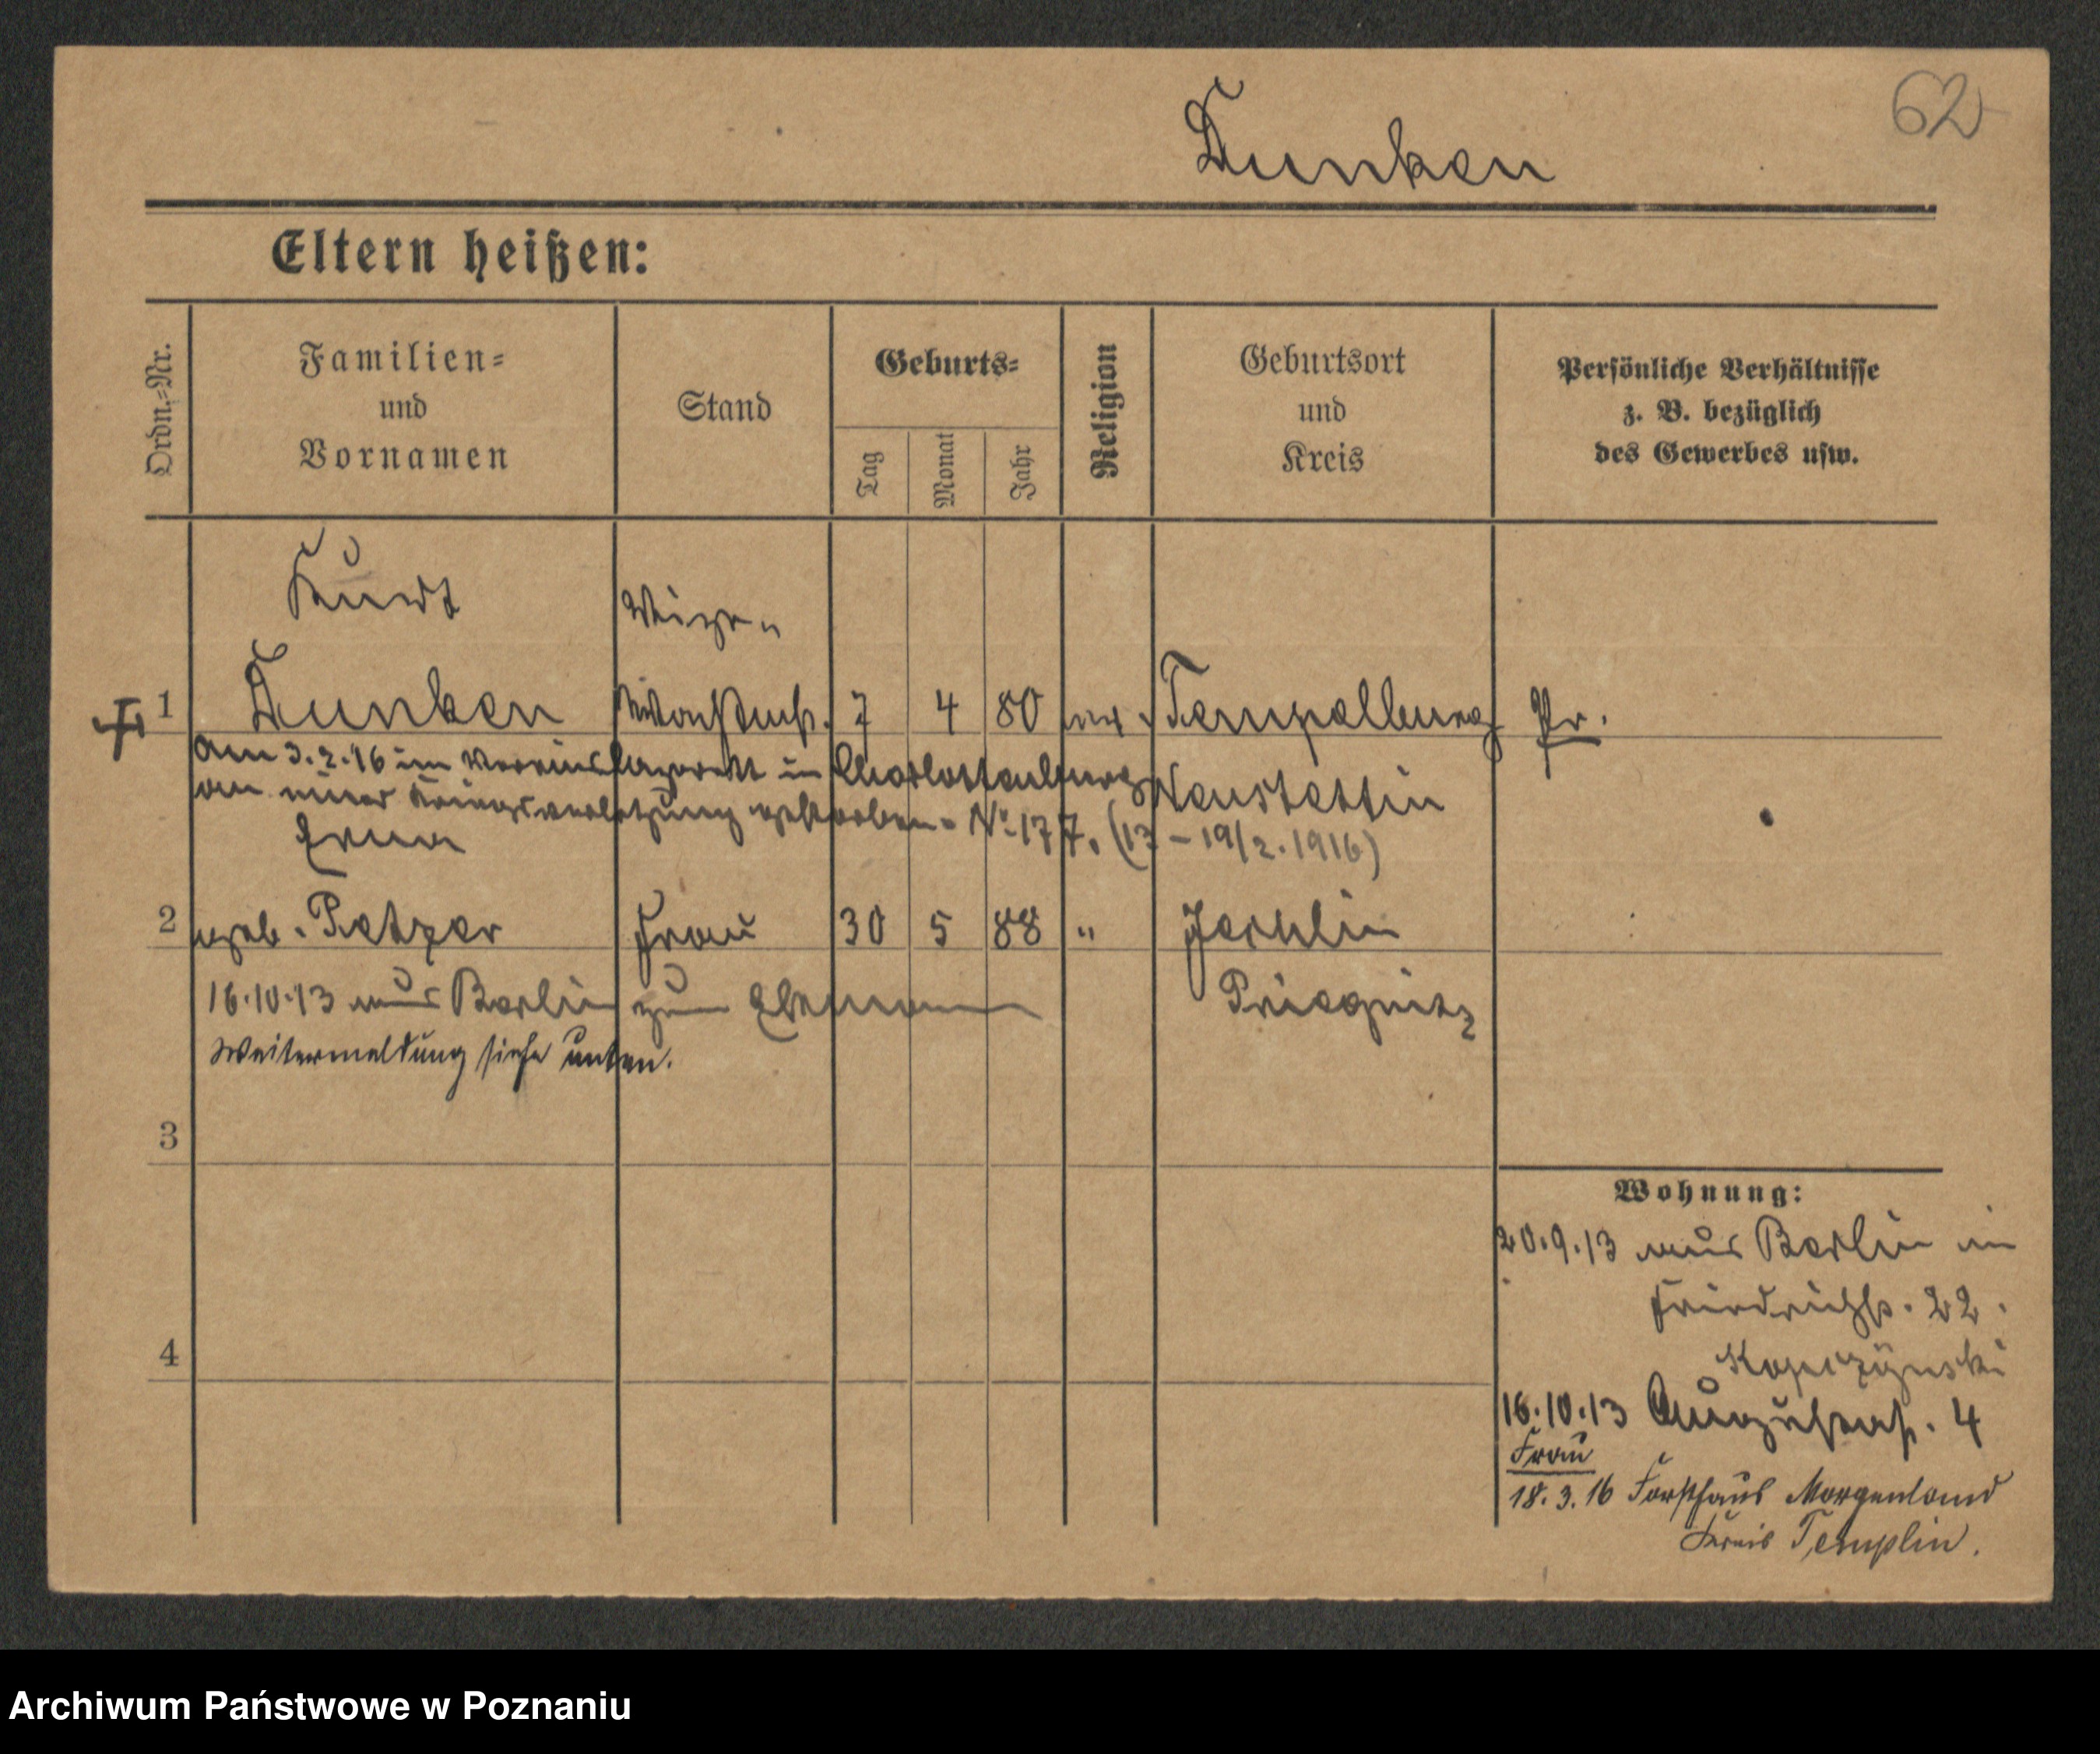 62
Dunken
Eltern heißen:
Ordn.-Nr.
Familien-
und
Vornamen
Stand
Geburts-
Tag
Monat
Jahr
Religion
Geburtsort
und
Kreis
Persönliche Verhältnisse
z. B. bezüglich
des Gewerbes usw.
Kurt
1 Dunken 7 4 80 Tempelburg Pr.
am 3.2.16 im Vereinslazarett in Charlottenburg Neustettin
an einer Kriegsverletzung gestorben. No 177. (13 - 19/2.1916)
Erna
2 geb. Petzer Frau 30 5 88 "
16.10.13 aus Berlin zum Ehemann Priegnitz
Weitermeldung siehe unten.
3
Wohnung:
20.9.13 aus Berlin in
Friedrichstr. 22.
4
16.10.13 Augustastr. 4
Frau
18.3.16 Forsthaus Morgenland
Kreis Templin.
Archiwum Państwowe w Poznaniu